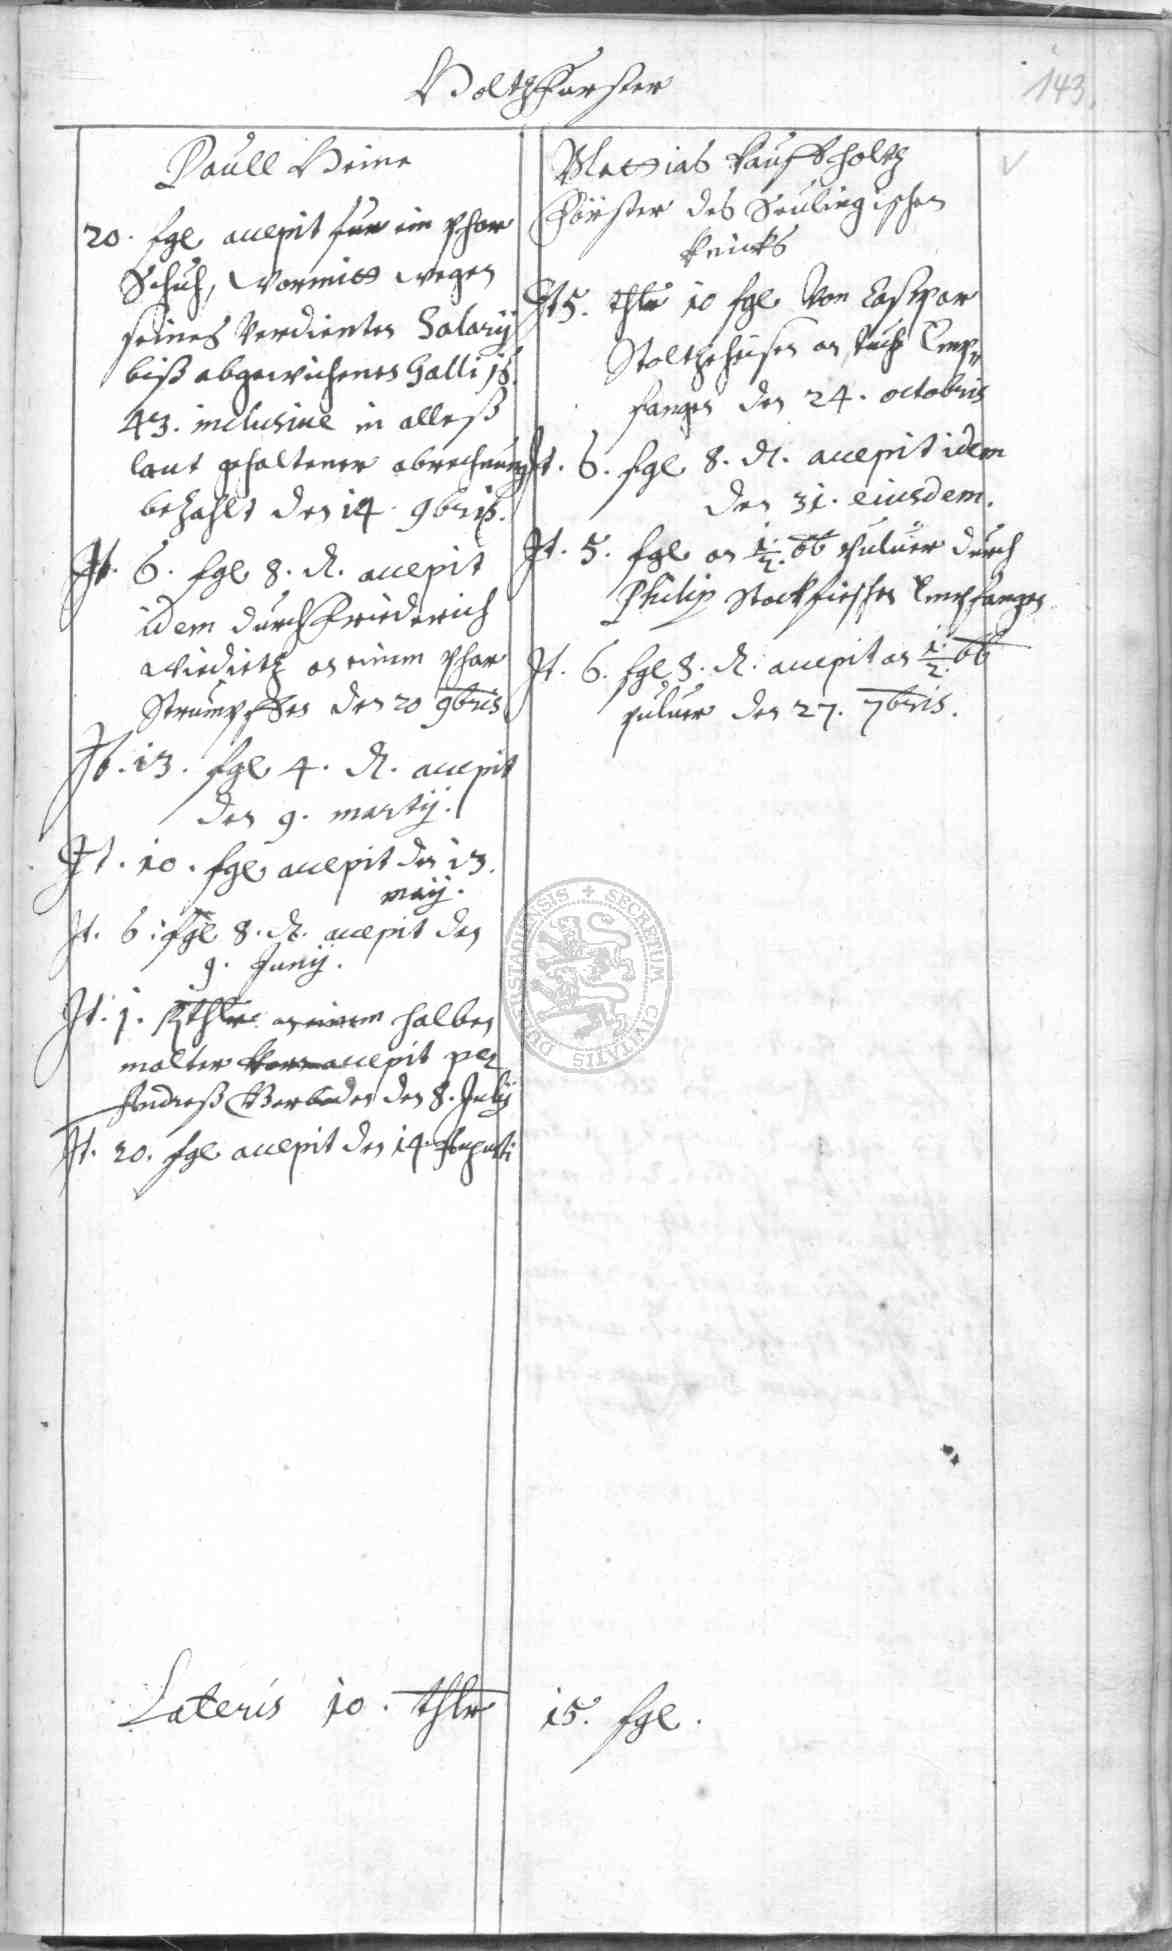 HoltzFörster
143.
Paull Heine
20. fgl accepit fur ein phar
Schuh, Wormitt wegen
seines Verdienten Salarij
biß abgewichenes Galli 16
43. inclusive in alleß
laut gehaltener abrechnung
bezahlt den 14. 9bris.
It. 6. fgl 8. d. accepit
idem durch Friederich
an einem phar
Strümpffen den 20 9bris
It. 13. fgl 4. d. accepit
den 9. martij.
It. 10. fgl accepit den 13.
maij.
It. 6. fgl 8. d. accepit den
9. Junij.
It. 1. Rthlr an einem halben
malter Korn accepit per
Andreß den 8. Julij
It. 20. fgl accepit den 14 Augusti
Mattias Kauffholtz
Förster des Seulingischen
It 5. thlr 10 fgl Von Caspar
Stoltzehusen an tuch Emp-
fangen den 24. octobris
It. 6. fgl 8. d. accepit idem
den 31. eiusdem.
It. 5. fgl an 1/2 lb puluer durch
Philip Stockfischen Empfangen
It. 6. fgl 8. d. accepit an 1/2 lb
puluer den 27. 7bris.
SECRETUM CIVITATIS DUDERSTADIENSIS
Lateris 10. thlr 15. fgl.